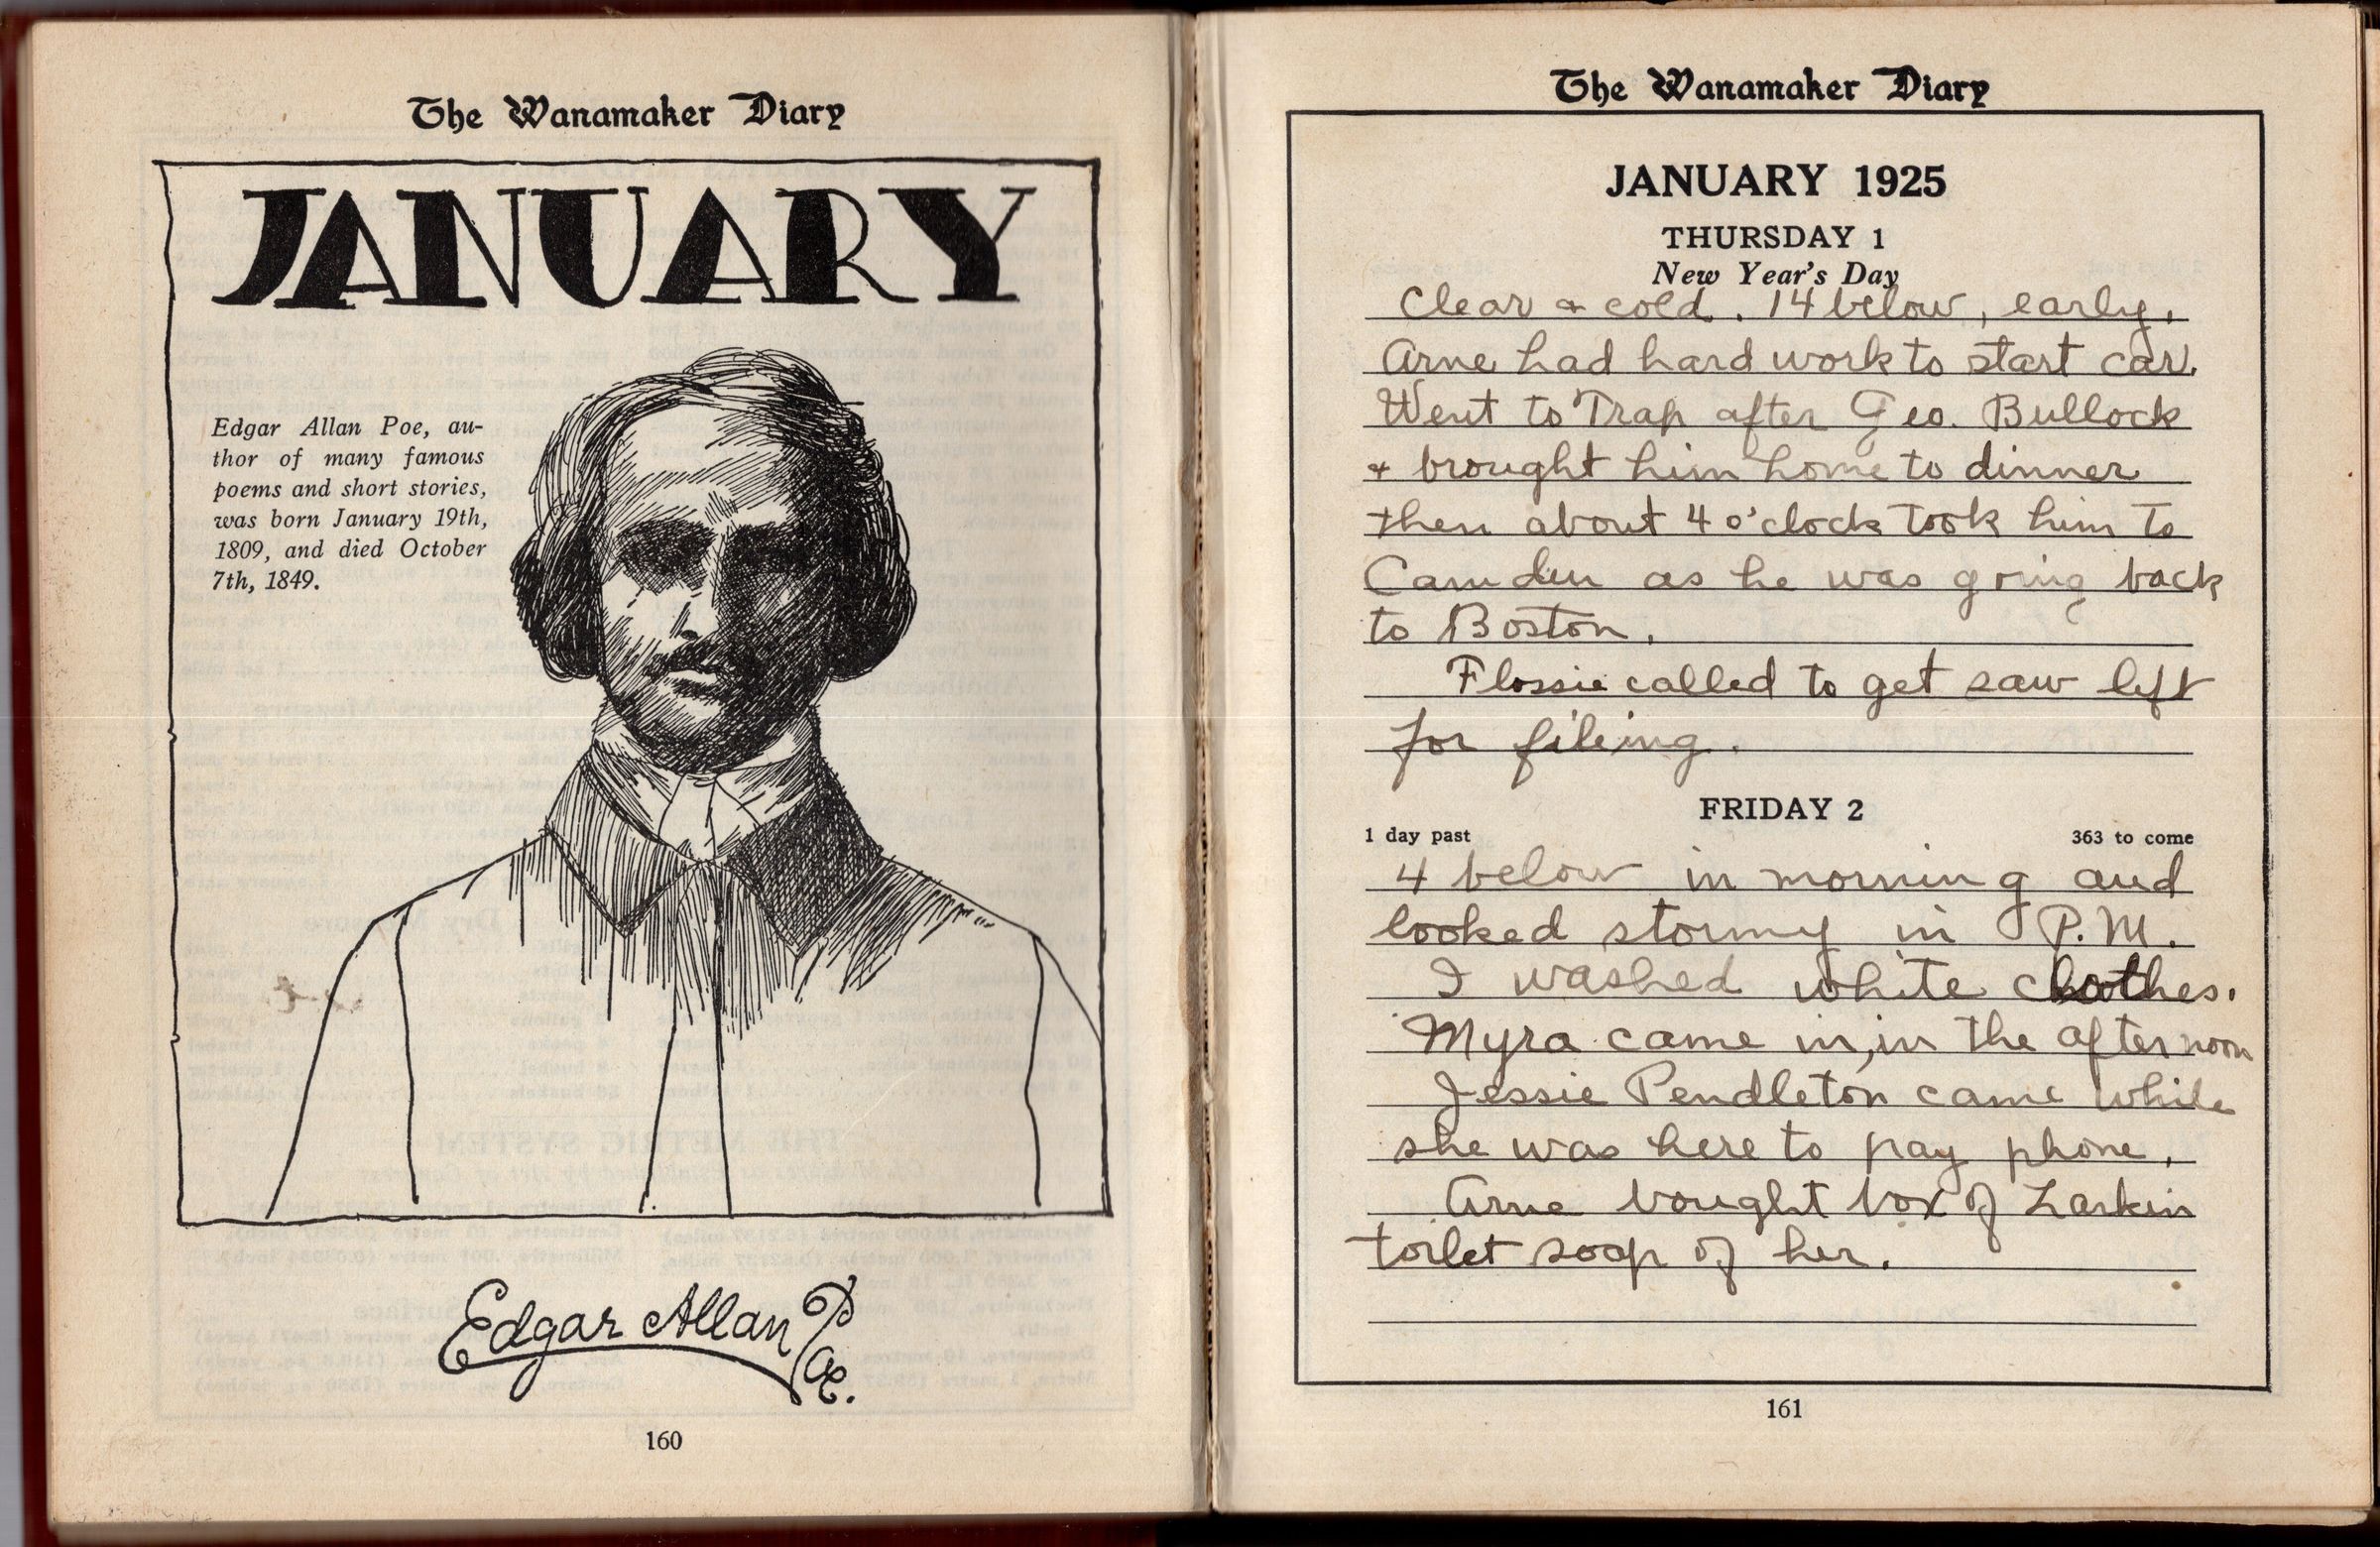 The Wanamaker Diary
JANUARY
Edgar Allan Poe, au-
thor of many famous
poems and short stories,
was born January 19th,
1809, and died October
7th, 1849.
Edgar Allan Poe.
160
The Wanamaker Diary
JANUARY 1925
THURSDAY 1
New Year's Day
Clear & cold. 14 below, early.
Arne had hard work to start car.
Went to Trap after Geo. Bullock
& brought him home to dinner
then about 4 o'clock took him to
Camden as he was going back
to Boston.
Flossie called to get saw left
for fileing.
FRIDAY 2
1 day past 363 to come
4 below in morning and
looked stormy in P.M.
I washed white clothes.
Myra came in, in the afternoon
Jessie Pendleton came while
she was here to pay phone.
Arne bought box of Larkin
toilet soap of her.
161